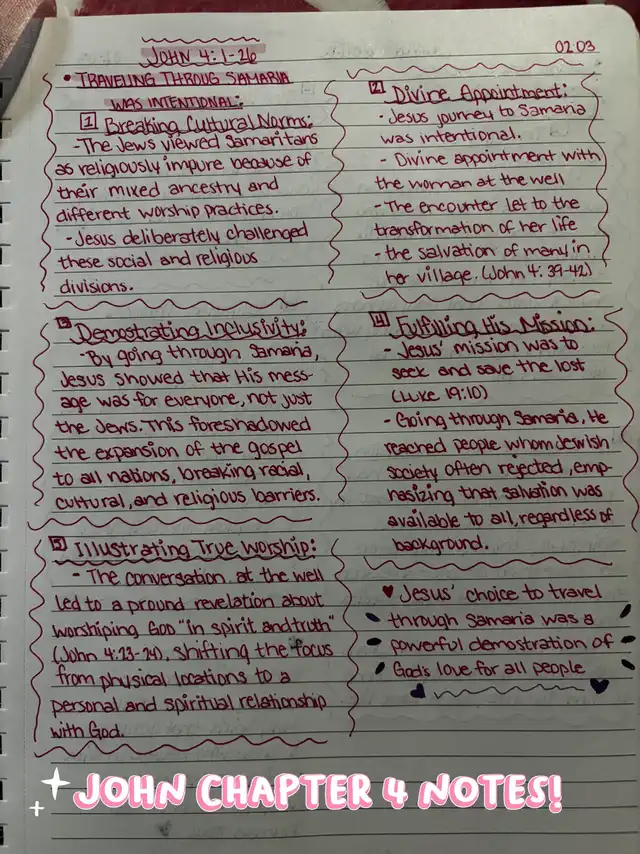 JOHN 4:1-26
02.03
• TRAVELING THROUG SAMARIA
WAS INTENTIONAL:
1 Breaking Cultural Norms:
-The Jews viewed Samaritans
as religiously impure because of
their mixed ancestry and
different worship practices.
-Jesus deliberately challenged
these social and religious
divisions.
2 Divine Appointment:
- Jesus journey to Samaria
was intentional.
- Divine appointment with
the woman at the well
-The encounter let to the
transformation of her life
-the salvation of many in
her village. (John 4: 39-42)
3 Demostrating Inclusivity:
-By going through Samaria,
Jesus showed that His mess-
age was for everyone, not just
the Jews. This foreshadowed
the expansion of the gospel
to all nations, breaking racial,
cultural, and religious barriers.
4 Fulfilling His Mission:
- Jesus' mission was to
seek and save the lost
(Luke 19:10)
- Going through Samaria, He
reached people whom Jewish
society often rejected, emp-
hasizing that salvation was
available to all, regardless of
background.
5 Illustrating True Worship:
- The conversation at the well
led to a pround revelation about
worshiping God "in spirit and truth"
(John 4:23-24), shifting the focus
from physical locations to a
personal and spiritual relationship
with God.
♥ Jesus' choice to travel
through Samaria was a
powerful demostration of
God's love for all people
JOHN CHAPTER 4 NOTES!